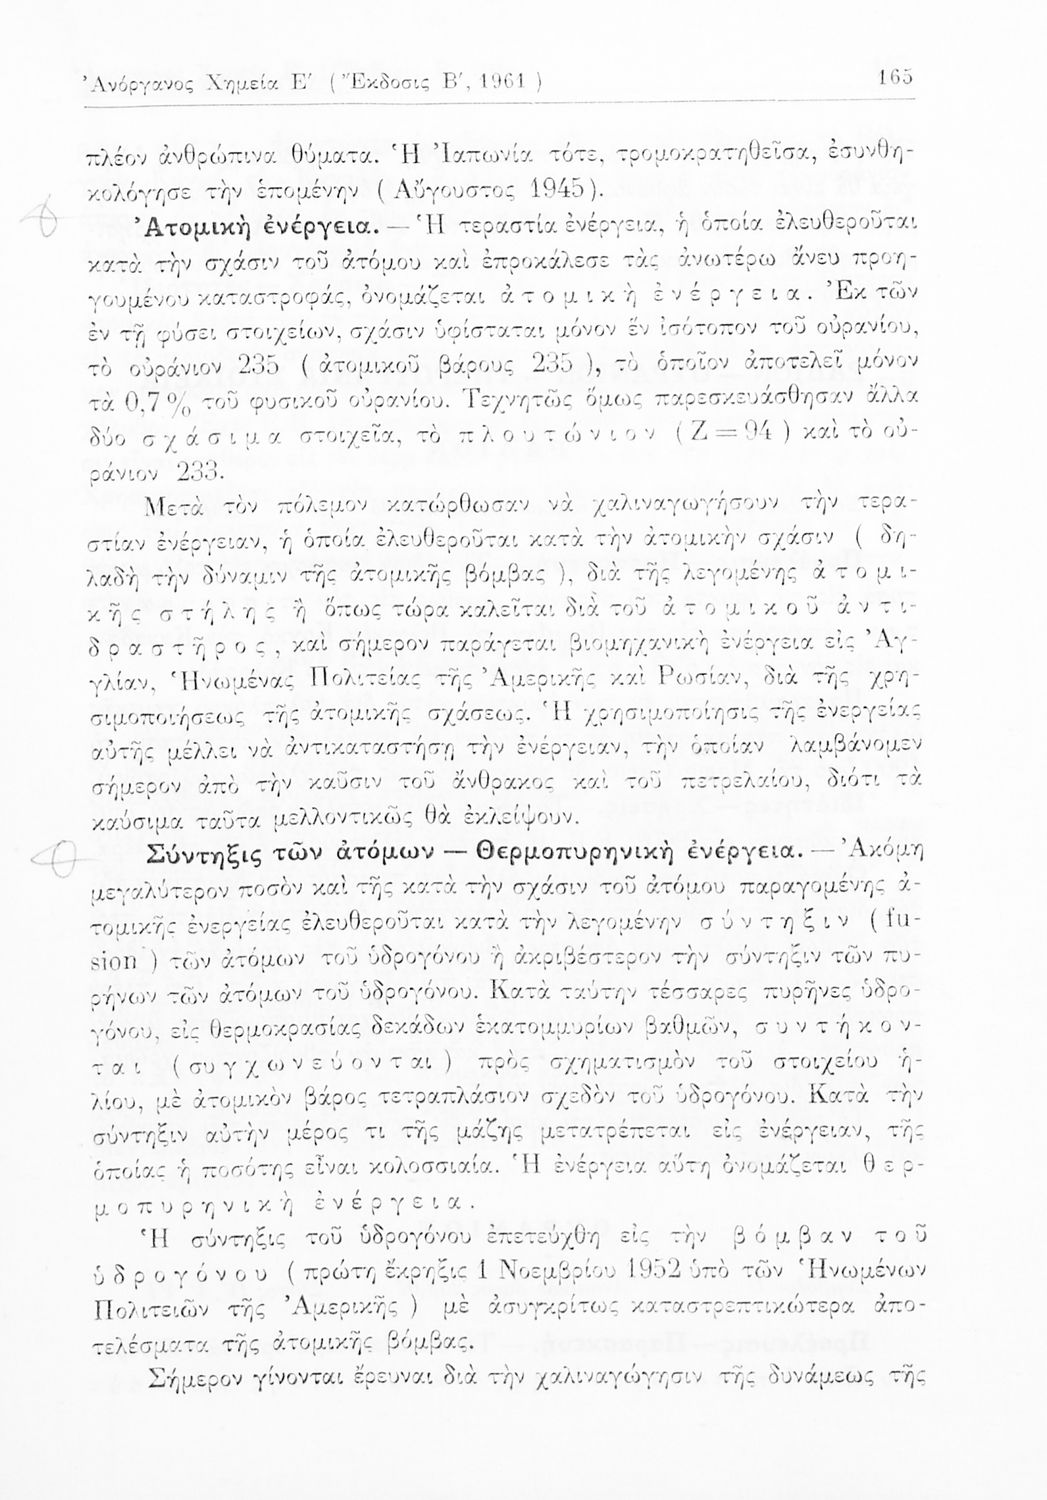 Ἀνόργανος Χημεία Ε′ ( Ἔκδοσις Β′, 1961 ) 165
πλέον ἀνθρώπινα θύματα. Ἡ Ἰαπωνία τότε, τρομοκρατηθεῖσα, ἐσυνθη-
κολόγησε τὴν ἑπομένην ( Αὔγουστος 1945 ).
Ἀτομικὴ ἐνέργεια. — Ἡ τεραστία ἐνέργεια, ἡ ὁποία ἐλευθεροῦται
κατὰ τὴν σχάσιν τοῦ ἀτόμου καὶ ἐπροκάλεσε τὰς ἀνωτέρω ἄνευ προη-
γουμένου καταστροφάς, ὀνομάζεται ἀτομικὴ ἐνέργεια. Ἐκ τῶν
ἐν τῇ φύσει στοιχείων, σχάσιν ὑφίσταται μόνον ἓν ἰσότοπον τοῦ οὐρανίου,
τὸ οὐράνιον 235 ( ἀτομικοῦ βάρους 235 ), τὸ ὁποῖον ἀποτελεῖ μόνον
τὰ 0,7 % τοῦ φυσικοῦ οὐρανίου. Τεχνητῶς ὅμως παρεσκευάσθησαν ἄλλα
δύο σχάσιμα στοιχεῖα, τὸ πλουτώνιον ( Z = 94 ) καὶ τὸ οὐ-
ράνιον 233.
Μετὰ τὸν πόλεμον κατώρθωσαν νὰ χαλιναγωγήσουν τὴν τερα-
στίαν ἐνέργειαν, ἡ ὁποία ἐλευθεροῦται κατὰ τὴν ἀτομικὴν σχάσιν ( δη-
λαδὴ τὴν δύναμιν τῆς ἀτομικῆς βόμβας ), διὰ τῆς λεγομένης ἀτομι-
κῆς στήλης ἢ ὅπως τώρα καλεῖται διὰ τοῦ ἀτομικοῦ ἀντι-
δραστῆρος, καὶ σήμερον παράγεται βιομηχανικὴ ἐνέργεια εἰς Ἀγ-
γλίαν, Ἡνωμένας Πολιτείας τῆς Ἀμερικῆς καὶ Ρωσίαν, διὰ τῆς χρη-
σιμοποιήσεως τῆς ἀτομικῆς σχάσεως. Ἡ χρησιμοποίησις τῆς ἐνεργείας
αὐτῆς μέλλει νὰ ἀντικαταστήσῃ τὴν ἐνέργειαν, τὴν ὁποίαν λαμβάνομεν
σήμερον ἀπὸ τὴν καῦσιν τοῦ ἄνθρακος καὶ τοῦ πετρελαίου, διότι τὰ
καύσιμα ταῦτα μελλοντικῶς θὰ ἐκλείψουν.
Σύντηξις τῶν ἀτόμων — Θερμοπυρηνικὴ ἐνέργεια. — Ἀκόμη
μεγαλύτερον ποσὸν καὶ τῆς κατὰ τὴν σχάσιν τοῦ ἀτόμου παραγομένης ἀ-
τομικῆς ἐνεργείας ἐλευθεροῦται κατὰ τὴν λεγομένην σύντηξιν ( fu-
sion ) τῶν ἀτόμων τοῦ ὑδρογόνου ἢ ἀκριβέστερον τὴν σύντηξιν τῶν πυ-
ρήνων τῶν ἀτόμων τοῦ ὑδρογόνου. Κατὰ ταύτην τέσσαρες πυρῆνες ὑδρο-
γόνου, εἰς θερμοκρασίας δεκάδων ἑκατομμυρίων βαθμῶν, συντήκον-
ται ( συγχωνεύονται ) πρὸς σχηματισμὸν τοῦ στοιχείου ἡ-
λίου, μὲ ἀτομικὸν βάρος τετραπλάσιον σχεδὸν τοῦ ὑδρογόνου. Κατὰ τὴν
σύντηξιν αὐτὴν μέρος τι τῆς μάζης μετατρέπεται εἰς ἐνέργειαν, τῆς
ὁποίας ἡ ποσότης εἶναι κολοσσιαία. Ἡ ἐνέργεια αὕτη ὀνομάζεται θερ-
μοπυρηνικὴ ἐνέργεια.
Ἡ σύντηξις τοῦ ὑδρογόνου ἐπετεύχθη εἰς τὴν βόμβαν τοῦ
ὑδρογόνου ( πρώτη ἔκρηξις 1 Νοεμβρίου 1952 ὑπὸ τῶν Ἡνωμένων
Πολιτειῶν τῆς Ἀμερικῆς ) μὲ ἀσυγκρίτως καταστρεπτικώτερα ἀπο-
τελέσματα τῆς ἀτομικῆς βόμβας.
Σήμερον γίνονται ἔρευναι διὰ τὴν χαλιναγώγησιν τῆς δυνάμεως τῆς